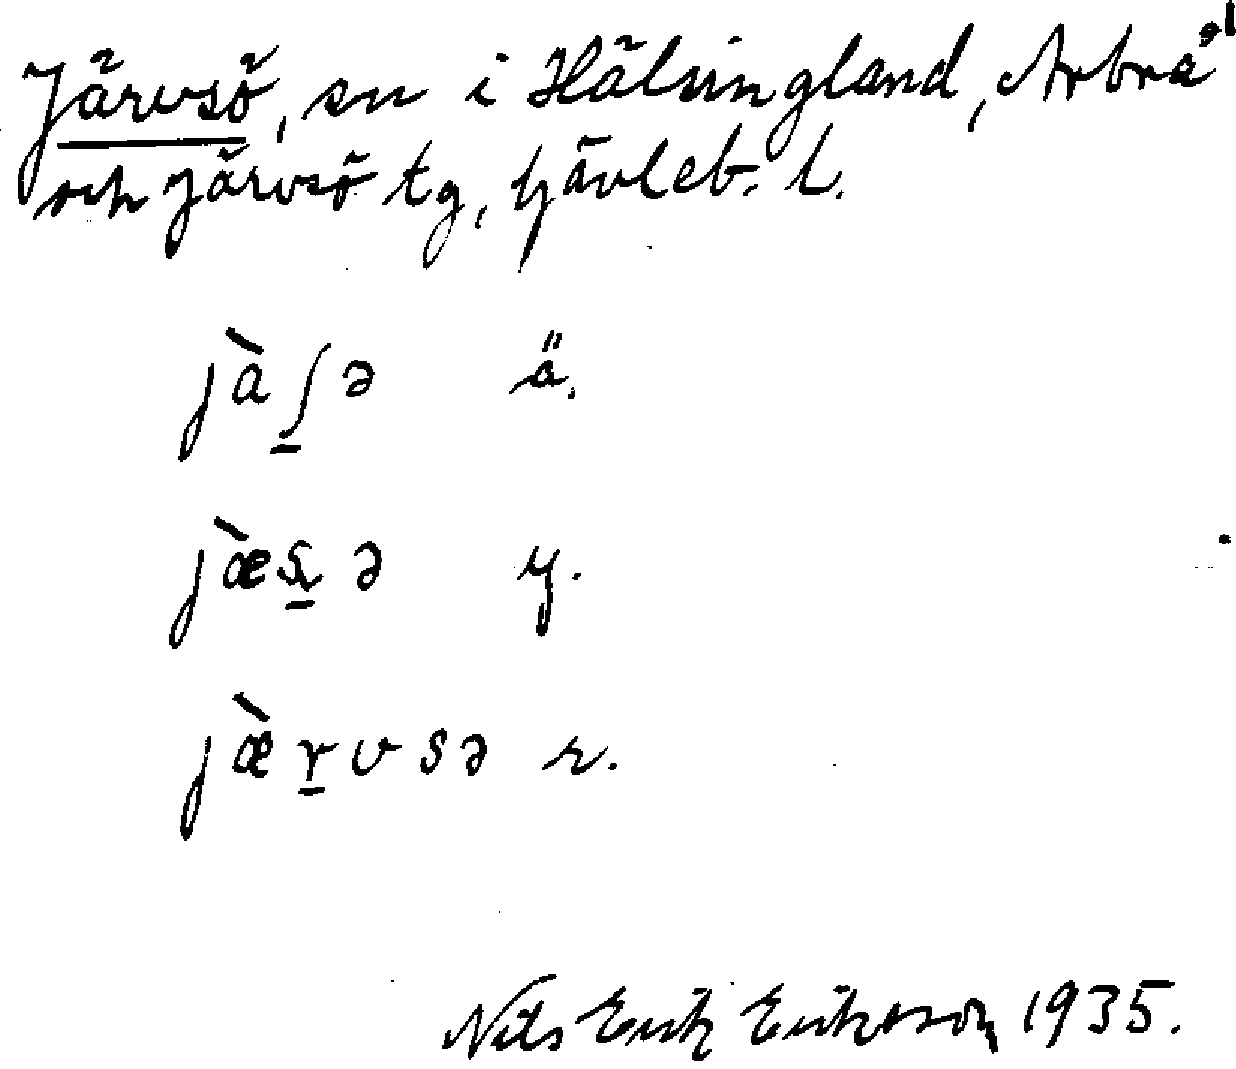 Järvsö, sn i Hälsingland, Arbrå
och Järvsö tg, Gävleb. l.
jàʃ̠ə ä.
jæ̀s̠ə y.
jæ̀r̠vsə r.
Nils Erik Eriksson 1935.